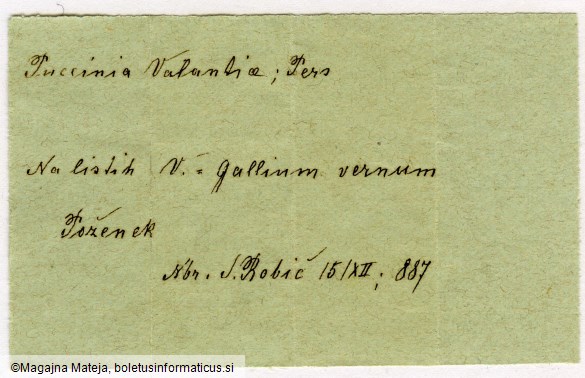 Puccinia Valantiæ; Pers
Na listih V. = Gallium vernum
Poženek
Nbr. S. Robič 15/XII; 887
©Magajna Mateja, boletusinformaticus.si